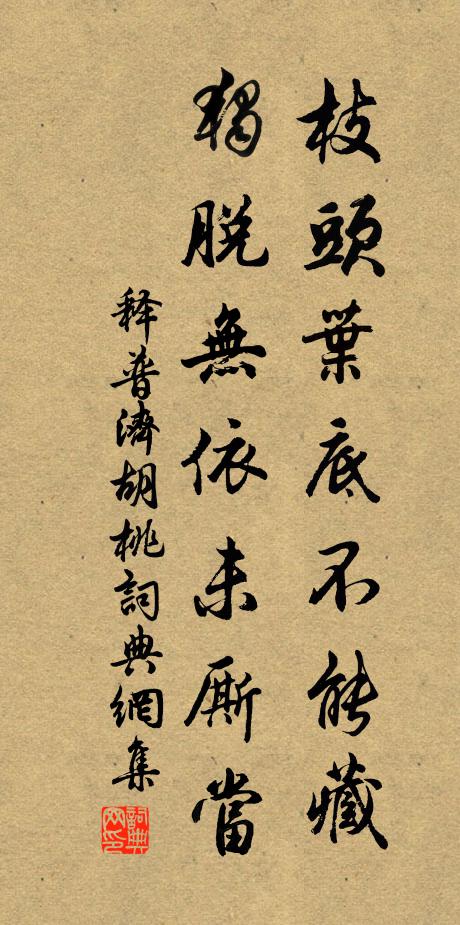 枝頭葉底不能藏
獨脫無依未厮當
释普濟胡桃詞典網集
詞典網印